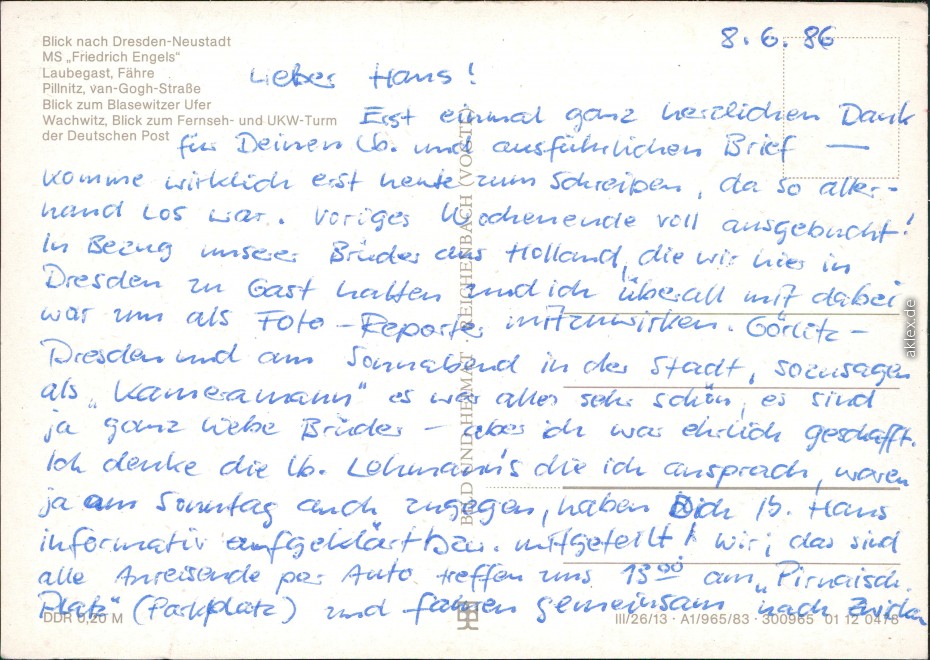 Blick nach Dresden-Neustadt
MS „Friedrich Engels"
Laubegast, Fähre
Pillnitz, van-Gogh-Straße
Blick zum Blasewitzer Ufer
Wachwitz, Blick zum Fernseh- und UKW-Turm
der Deutschen Post
8. 6. 86
Lieber Hans!
Erst einmal ganz herzlichen Dank
für Deinen lb. und ausführlichen Brief —
komme wirklich erst heute zum Schreiben, da so aller-
hand los war. Voriges Wochenende voll ausgebucht!
In Bezug unserer Brüder aus Holland, die wir hier in
Dresden zu Gast hatten und ich überall mit dabei
war um als Foto-Reporter mitzuwirken. Görlitz-
Dresden und am Sonnabend in der Stadt, sozusagen
als „Kameramann" es war alles sehr schön, es sind
ja ganz liebe Brüder - aber ich war ehrlich geschafft.
Ich denke die lb. Lehmann's die ich ansprach, waren
ja am Sonntag auch zugegen, haben Dich lb. Hans
informativ aufgeklärt bzw. mitgeteilt! Wir, das sind
alle Anreisende per Auto treffen uns 13 00 am „Pirnaisch.
Platz" (Parkplatz) und fahren gemeinsam nach
BILD UND HEIMAT · REICHENBACH (VOGTL)
DDR 0,20 M
III/26/13 · A1/965/83 · 300965 01 12 0476
aklex.de